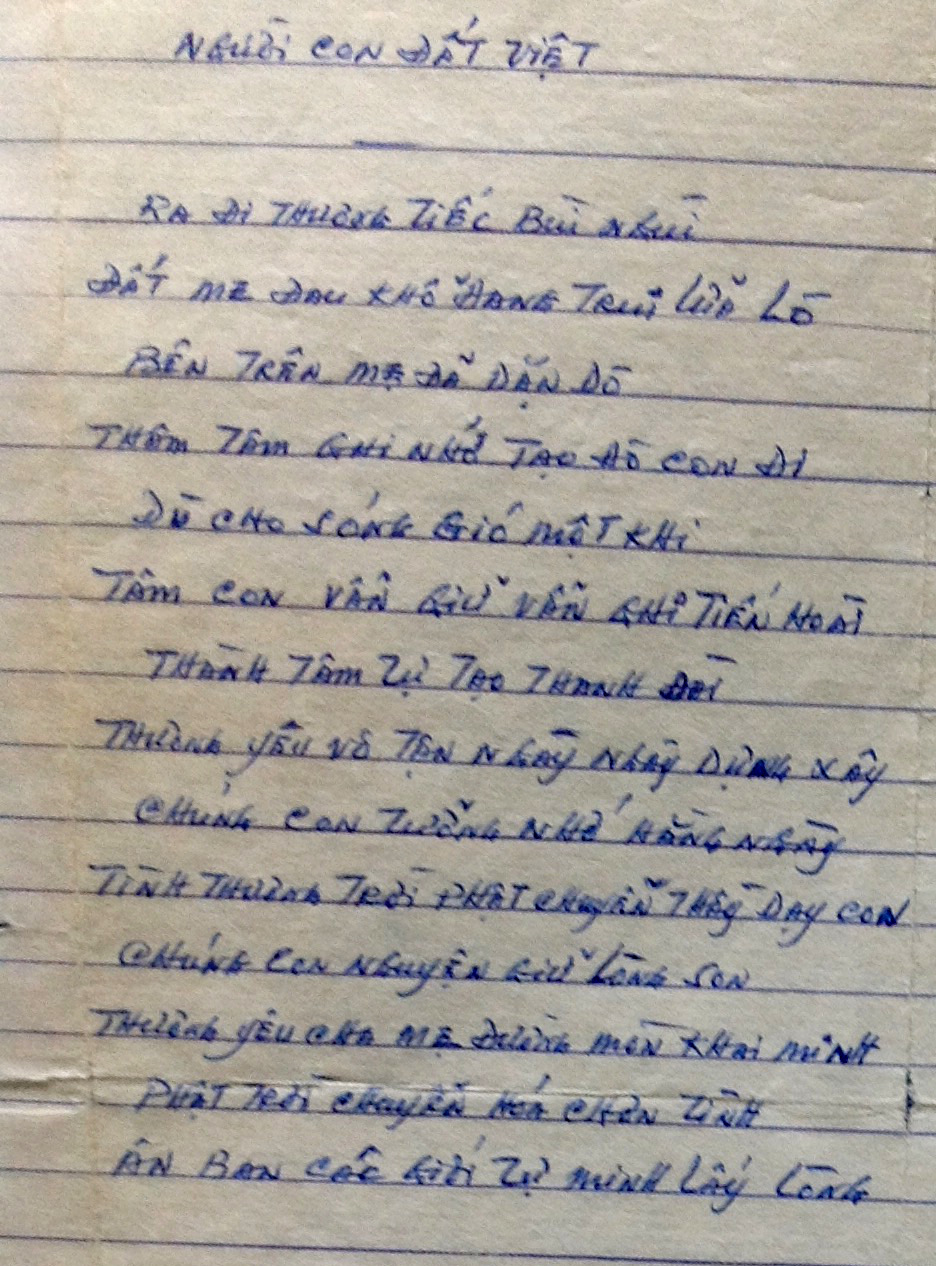 NGƯỜI CON ĐẤT VIỆT
RA ĐI THƯƠNG TIẾC BÙI NGÙI
ĐẤT MẸ ĐAU KHỔ HANG TRUI LỬA LÒ
BÊN TRÊN MẸ ĐÃ DẶN DÒ
THÂM TÂM GHI NHỚ TẠO ĐÒ CON ĐI
DÙ CHO SÓNG GIÓ MỘT KHI
TÂM CON VẪN GIỮ VẪN GHI TIẾN HOÀI
THÀNH TÂM TỰ TẠO THANH ĐÀI
THƯƠNG YÊU VÔ TẬN NGÀY NGÀY DỰNG XÂY
CHÚNG CON TƯỞNG NHỚ HẰNG NGÀY
TÌNH THƯƠNG TRỜI PHẬT CHUYỂN THẦY DẠY CON
CHÚNG CON NGUYỆN GIỮ LÒNG SON
THƯƠNG YÊU CHA MẸ ĐƯỜNG MÒN KHAI MINH
PHẬT TRỜI CHUYỂN HÓA CHƠN TÌNH
ÂN BAN CÁC GIỚI TỰ MINH LẤY LÒNG